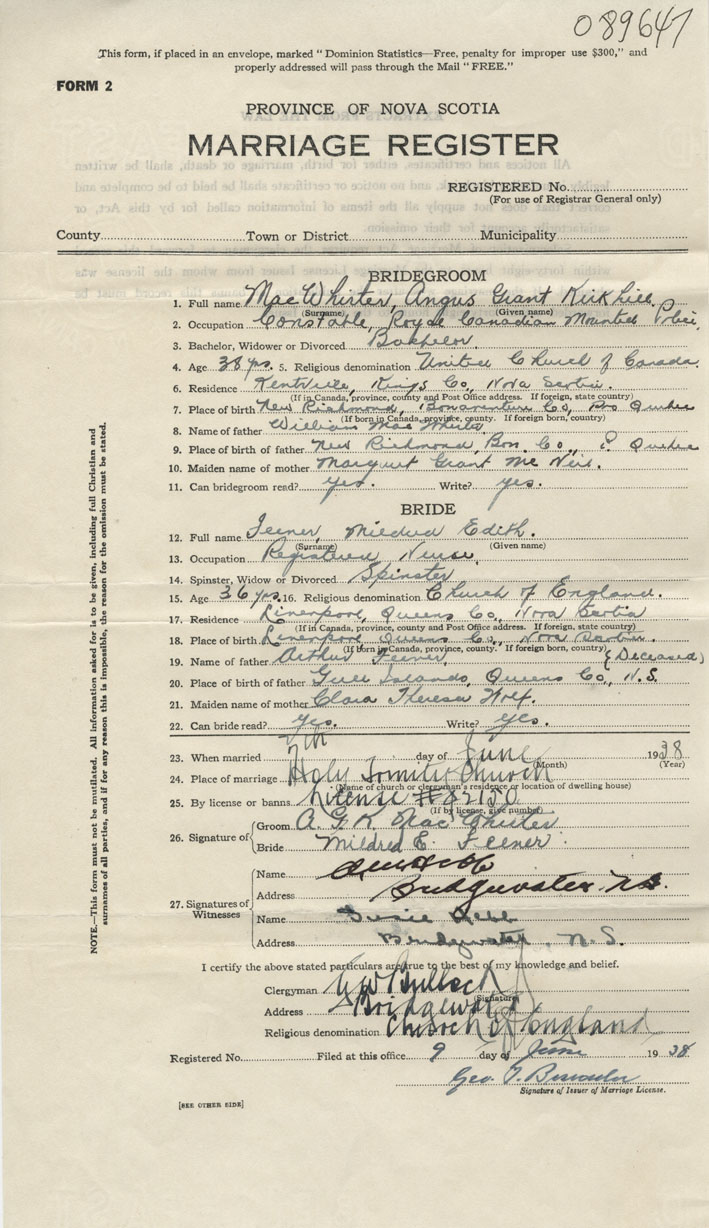 089647
This form, if placed in an envelope, marked "Dominion Statistics—Free, penalty for improper use $300," and
properly addressed will pass through the Mail "FREE."
FORM 2
PROVINCE OF NOVA SCOTIA
MARRIAGE REGISTER
REGISTERED No.
(For use of Registrar General only)
County Town or District Municipality
BRIDEGROOM
1. Full name MacWhirter, Angus Grant Kirkhill.
(Surname) (Given name)
2. Occupation Constable, Royal Canadian Mounted Police
3. Bachelor, Widower or Divorced Bachelor.
4. Age 38 yrs. 5. Religious denomination United Church of Canada.
6. Residence Kentville, Kings Co, Nova Scotia.
(If in Canada, province, county and Post Office address. If foreign, state country)
7. Place of birth New Richmond, Bonaventure Co, Pro Quebec
(If born in Canada, province, county. If foreign born, country)
8. Name of father William MacWhirter
9. Place of birth of father New Richmond, Bon. Co., P. Quebec
10. Maiden name of mother Margaret Grant Mc Neil.
11. Can bridegroom read? yes. Write? yes.
BRIDE
12. Full name Feener, Mildred Edith.
(Surname) (Given name)
13. Occupation Registered Nurse,
14. Spinster, Widow or Divorced Spinster
15. Age 36 yrs. 16. Religious denomination Church of England.
17. Residence Liverpool, Queens Co, Nova Scotia
(If in Canada, province, county and Post Office address. If foreign, state country)
18. Place of birth Liverpool Queens Co, Nova Scotia.
(If born in Canada, province, county. If foreign born, country)
19. Name of father Arthur Feener (Deceased)
20. Place of birth of father Gull Islands, Queens Co, N.S.
21. Maiden name of mother Clara Theresa Wolf.
22. Can bride read? yes. Write? yes.
23. When married 7th day of June 1938
(Month) (Year)
24. Place of marriage Holy Trinity Church
(Name of church or clergyman's residence or location of dwelling house)
25. By license or banns License #82150
(If by license, give number)
26. Signature of Groom A. G. K. MacWhirter
Bride Mildred E. Feener
27. Signatures of Witnesses
Name
Address Bridgewater N.S.
Name Susie
Address Bridgewater, N.S.
I certify the above stated particulars are true to the best of my knowledge and belief.
Clergyman Bullock
(Signature)
Address Bridgewater
Religious denomination Church of England
Registered No. Filed at this office 9 day of June 1938
Geo.
Signature of Issuer of Marriage License.
[SEE OTHER SIDE]
NOTE.—This form must not be mutilated. All information asked for is to be given, including full Christian and
surnames of all parties, and if for any reason this is impossible, the reason for the omission must be stated.